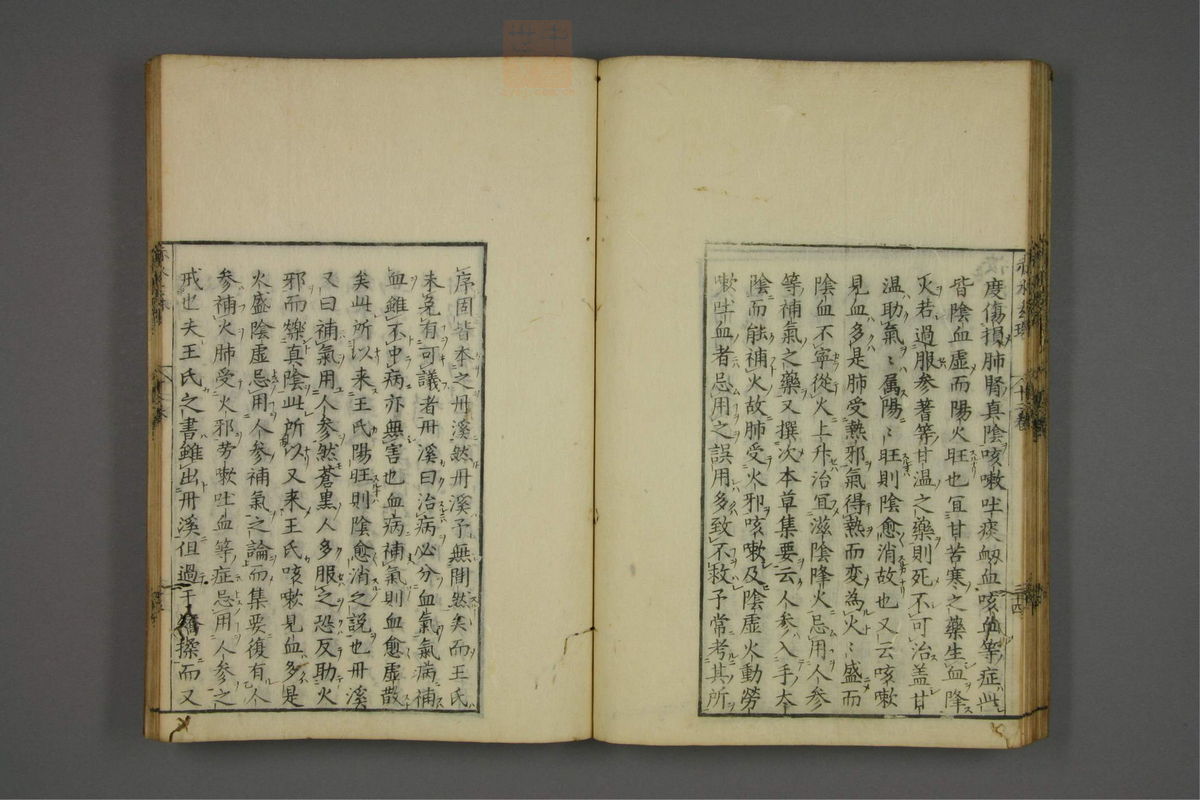 度傷損肺腎真陰咳嗽吐痰衂血咳血等症此
皆陰血虛而陽火旺也宜甘苦寒之藥生血降
火若過服參蓍等甘温之藥則死不可治盖甘
温助氣〻属陽〻旺則陰愈消故也又云咳嗽
見血多是肺受熱邪氣得熱而変為火〻盛而
陰血不寧從火上升治宜滋陰降火忌用人參
等補氣之藥又撰次本草集要云人參入手太
陰而能補火故肺受火邪咳嗽及陰虛火動勞
嗽吐血者忌用之誤用多致不救予常考其所
序固皆本之丹溪然丹溪予無間然矣而王氏
未免有可議者丹溪曰治病必分血氣氣病補
血雖不中病亦無害也血病補氣則血愈虛散
矣此所以来王氏陽旺則陰愈消之説也丹溪
又曰補氣用人參然蒼黒人多服之恐反助火
邪而爍真陰此所以又来王氏咳嗽見血多是
火盛陰虛忌用人參補氣之論而集要復有人
參補火肺受火邪劳嗽吐血等症忌用人參之
戒也夫王氏之書雖出丹溪但過于矯揉而又